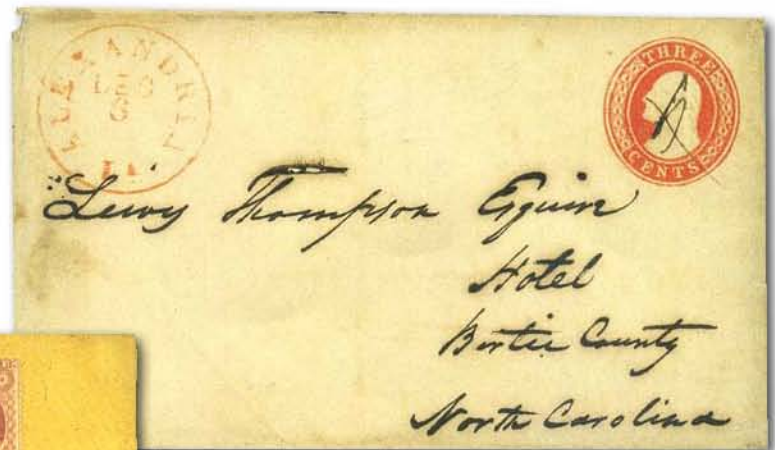 ALEXANDRIA
DEC
6
LA.
THREE
CENTS
Lewis Thompson Esquire
Hotel
Bertie County
North Carolina